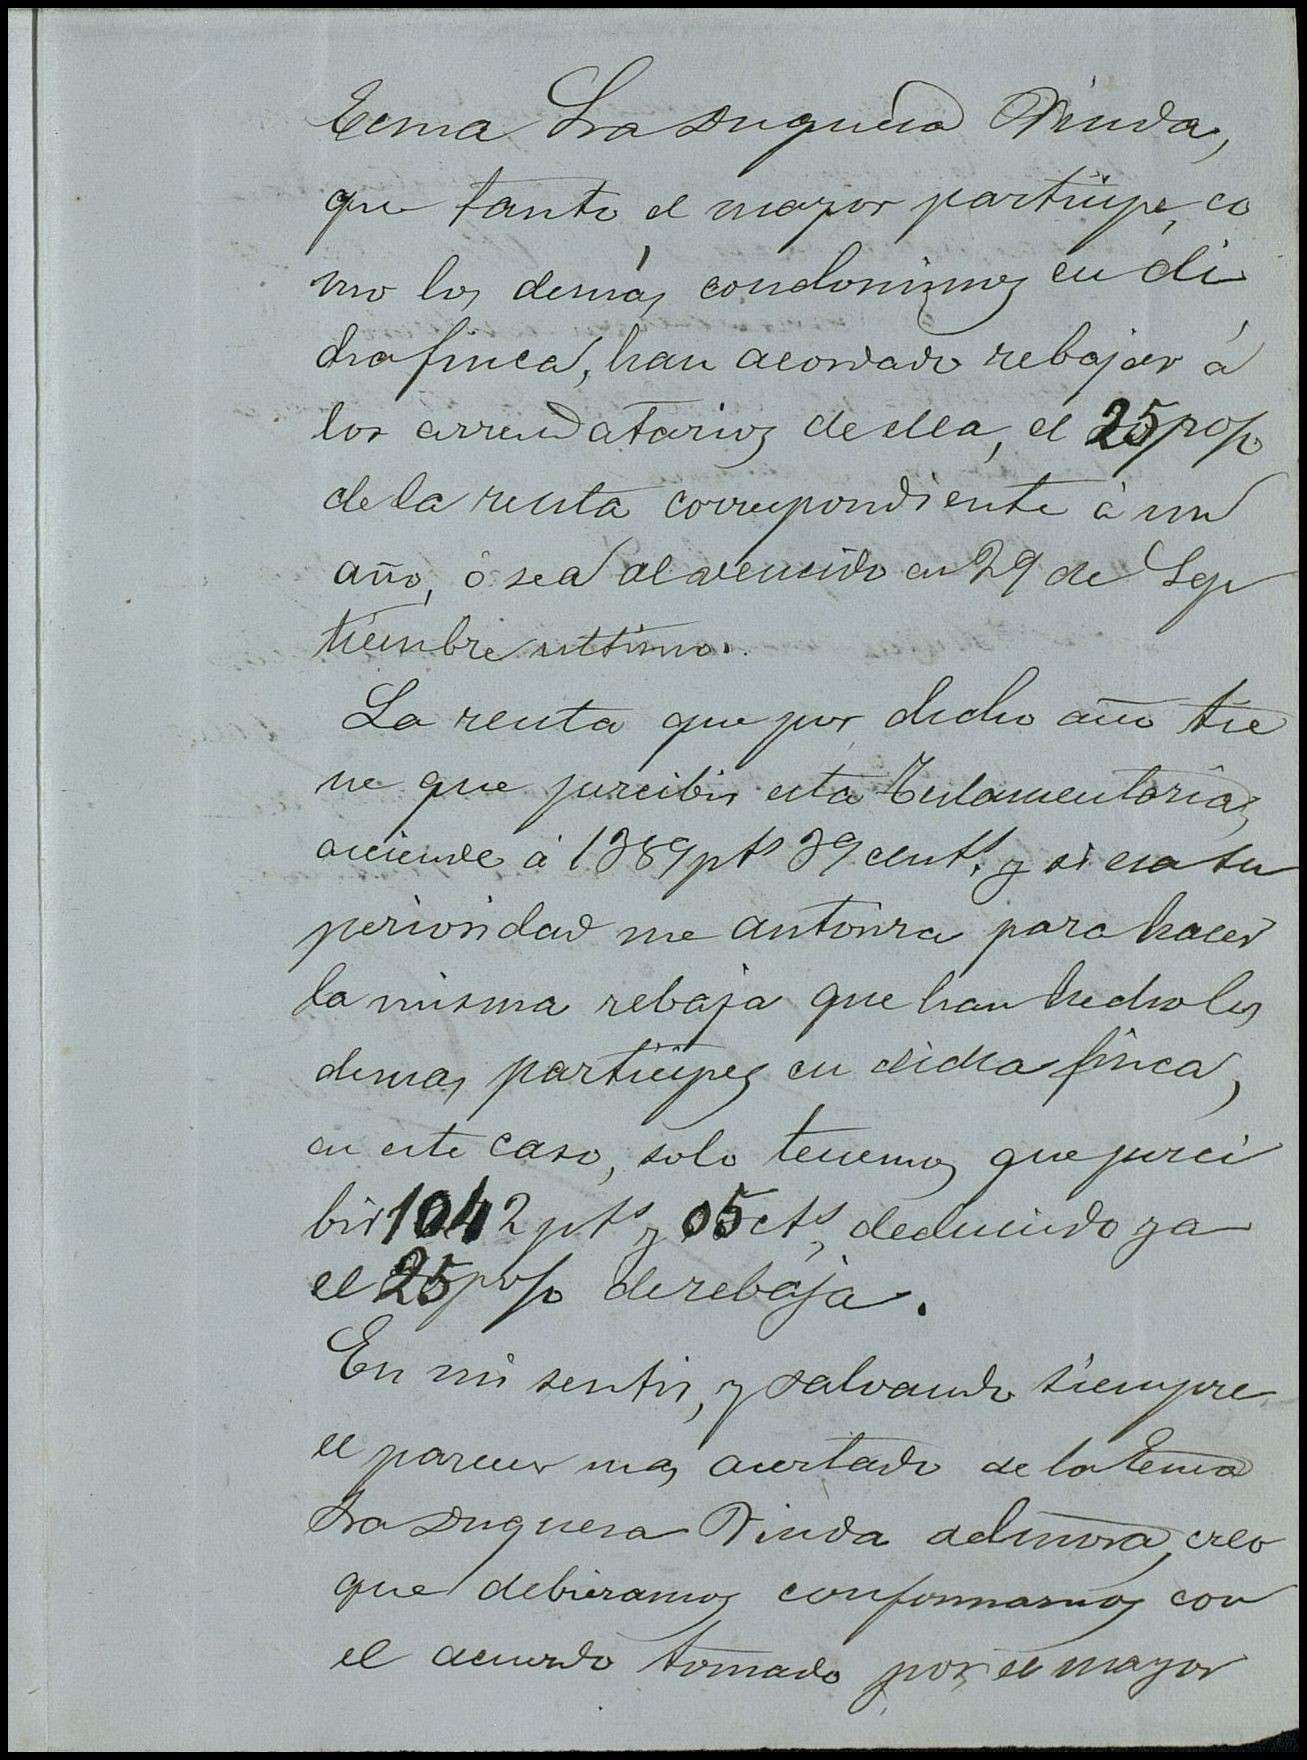 Ecma Sra Duquesa Viuda,
que tanto el mayor participe, co
mo los demás condominos en di
cha finca, han acordado rebajar á
los arrendatarios de ella, el 25 p o/o
de la renta correspondiente á un
año, ó sea al vencido en 29 de Sep
tiembre ultimo.
La renta que por dicho año tie
ne que percibir esta Testamentaria,
asciende á 1389 pts 39 cents. y si esa su
perioridad me autoriza para hacer
la misma rebaja que han hecho los
demas participes en dicha finca,
en este caso, solo tenemos que perci
bir 1042 pts y 05 cts, deducido ya
el 25 p o/o de rebaja.
En mi sentir, y salvando siempre
el parecer mas acertado de la Ecma
Sra Duquesa Viuda admora, creo
que debieramos conformarnos con
el acuerdo tomado por el mayor